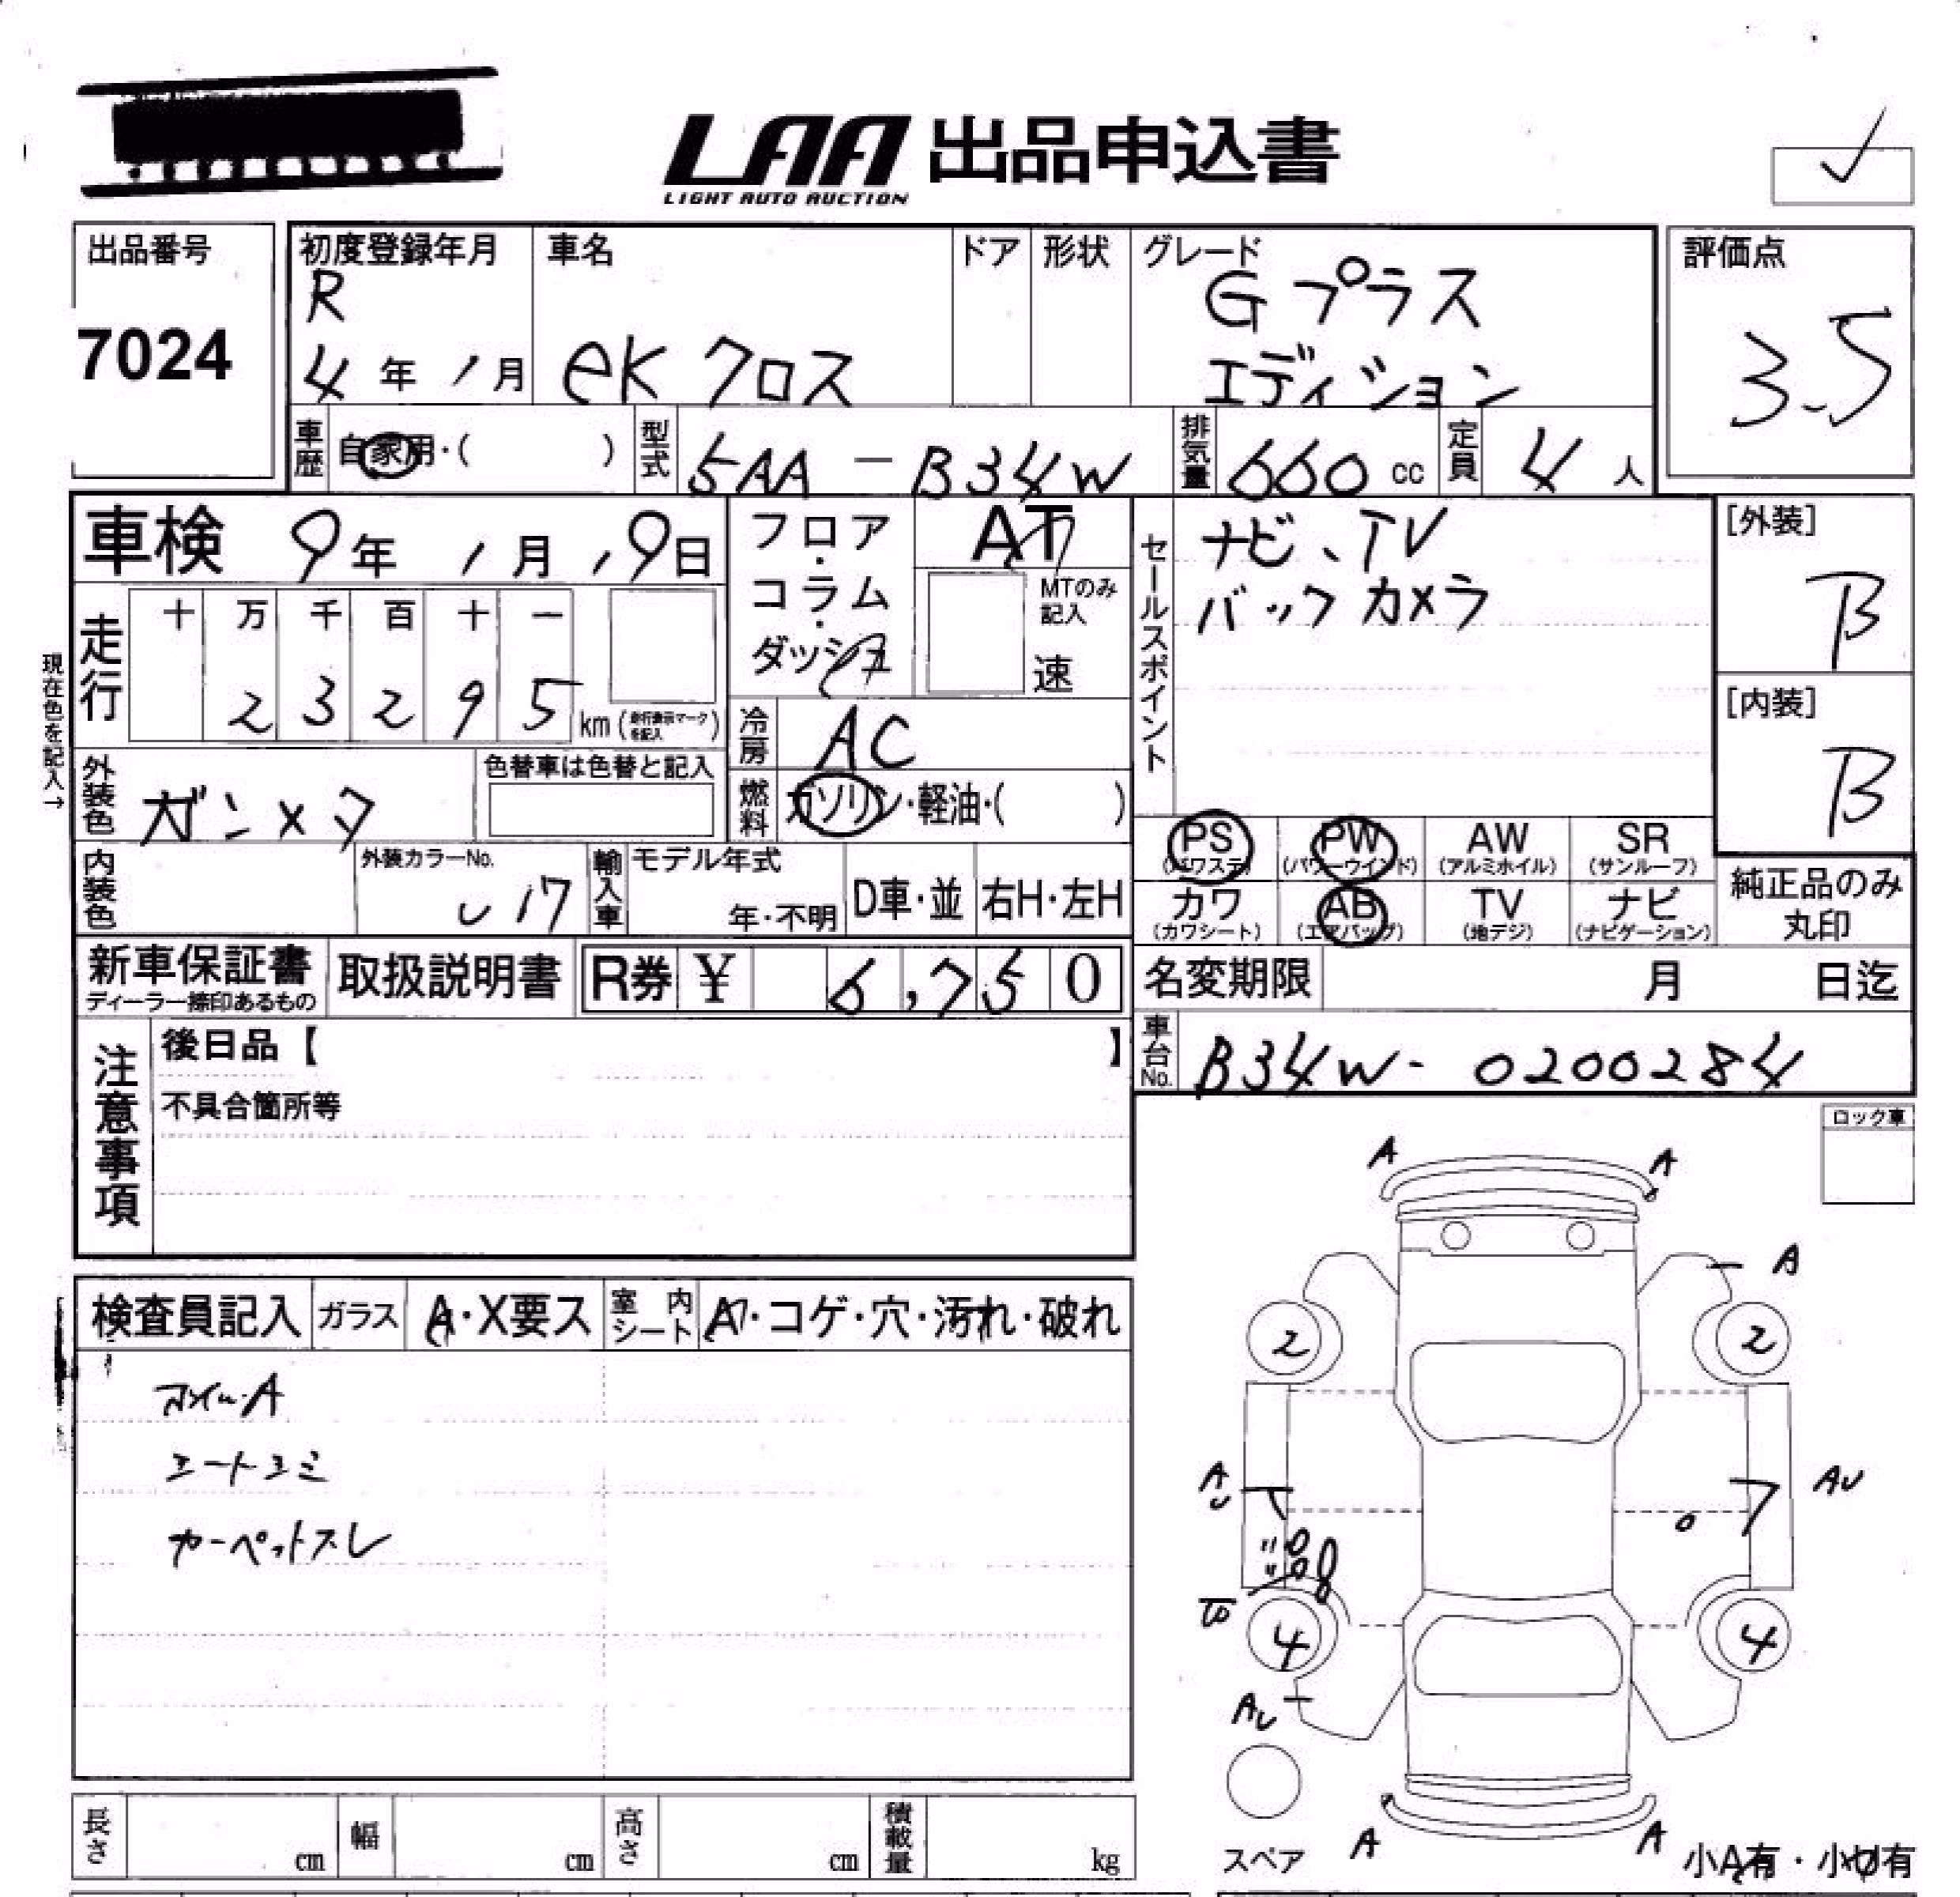 LAA 出品申込書
LIGHT AUTO AUCTION
出品番号
7024
初度登録年月
R
4年 1月
車名
eK クロス
ドア
形状
グレード
Gプラス
エディション
評価点
3.5
車歴
自家用・( )
型式
5AA - B34W
排気量
660 cc
定員
4 人
車検 9年 1月 19日
フロア・コラム・ダッシュ
AT
MTのみ記入
速
セールスポイント
ナビ、TV
バックカメラ
[外装]
B
[内装]
B
現在色を記入→
走行
十 万 千 百 十 一
2 3 2 9 5 km (走行表示マークを記入)
冷房
AC
外装色
ガンメタ
色替車は色替と記入
燃料
ガソリン・軽油・( )
PS (パワステ)
PW (パワーウインド)
AW (アルミホイル)
SR (サンルーフ)
カワ (カワシート)
AB (エアバッグ)
TV (地デジ)
ナビ (ナビゲーション)
純正品のみ丸印
内装色
外装カラーNo.
U17
輸入車
モデル年式
年・不明
D車・並
右H・左H
新車保証書
ディーラー捺印あるもの
取扱説明書
R券 ¥ 6,750
名変期限 月 日迄
注意事項
後日品【 】
不具合箇所等
車台No.
B34W- 0200284
ロック車
検査員記入
ガラス
A・X要ス
室内シート
A・コゲ・穴・汚れ・破れ
カーペットスレ
A A
A
2 2
AU
AU
4 4
AU
スペア
A A
小A有・小U有
長さ cm
幅 cm
高さ cm
積載量 kg